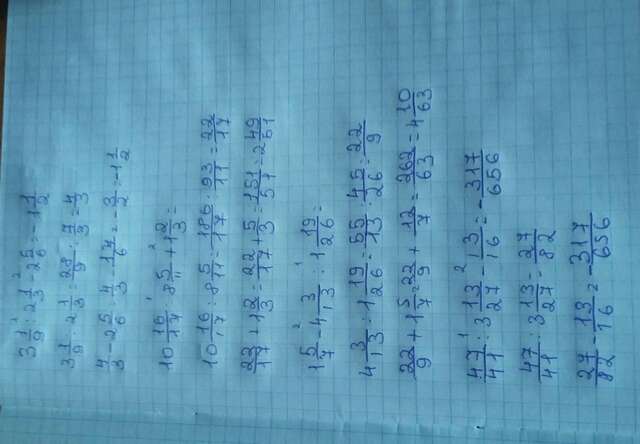 3 1/9 : 2 1/3 - 2 5/6 = -1 1/2
3 1/9 : 2 1/3 = 28/9 : 7/3 = 4/3
4/3 - 2 5/6 = 4/3 - 17/6 = -3/2 = -1 1/2
10 16/17 : 8 5/11 + 1 2/3 =
10 16/17 : 8 5/11 = 186/17 : 93/11 = 22/17
22/17 + 1 2/3 = 22/17 + 5/3 = 151/51 = 2 49/51
1 5/7 - 4 3/13 : 1 19/26 =
4 3/13 : 1 19/26 = 55/13 : 45/26 = 22/9
22/9 + 1 5/7 = 22/9 + 12/7 = 262/63 = 4 10/63
47/41 : 3 13/27 - 13/16 = -317/656
47/41 : 3 13/27 = 27/82
27/82 - 13/16 = -317/656